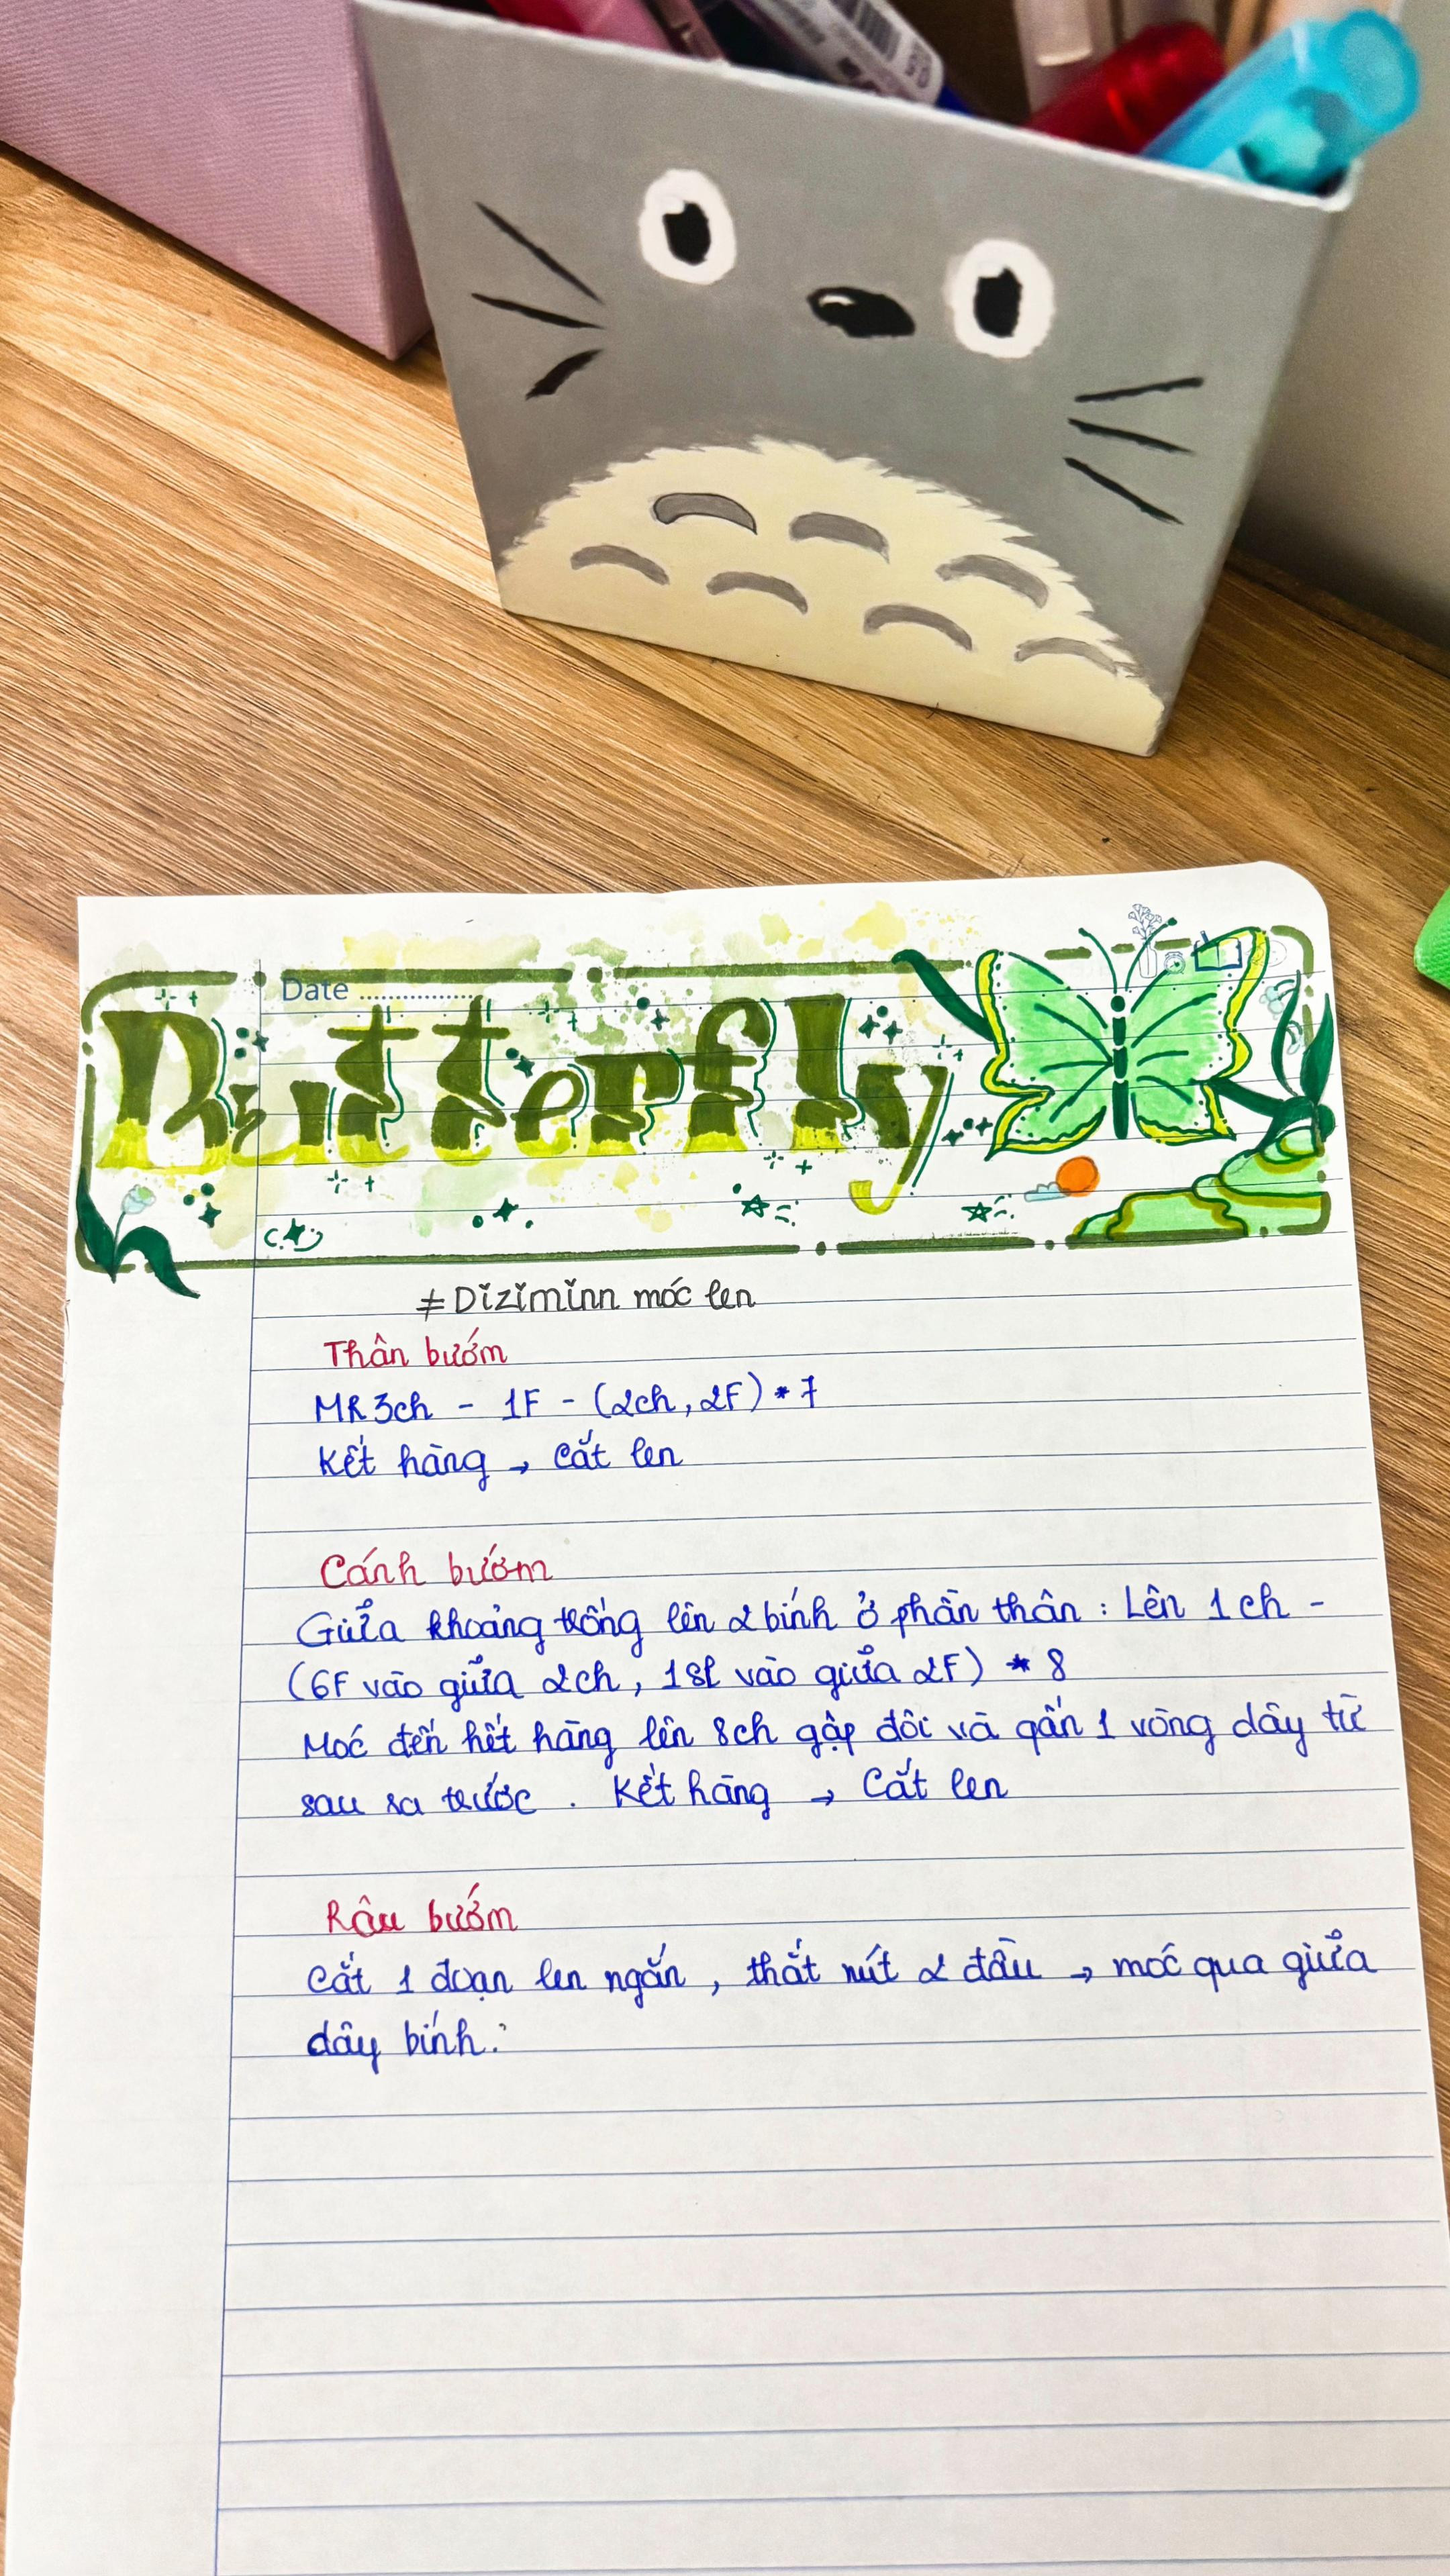 Date ................
Butterfly
≠ Diziminn móc len
Thân bướm
MR 3ch - 1F - (2ch, 2F) * 7
Kết hàng → Cắt len
Cánh bướm
Giữa khoảng trống lên 2 bính ở phần thân : Lên 1 ch -
(6F vào giữa 2ch, 1sl vào giữa 2F) * 8
Móc đến hết hàng lên 8ch gập đôi và gấn 1 vòng dây từ
sau ra trước . Kết hàng → Cắt len
Râu bướm
Cắt 1 đoạn len ngắn , thắt nút 2 đầu → móc qua giữa
dây bính.